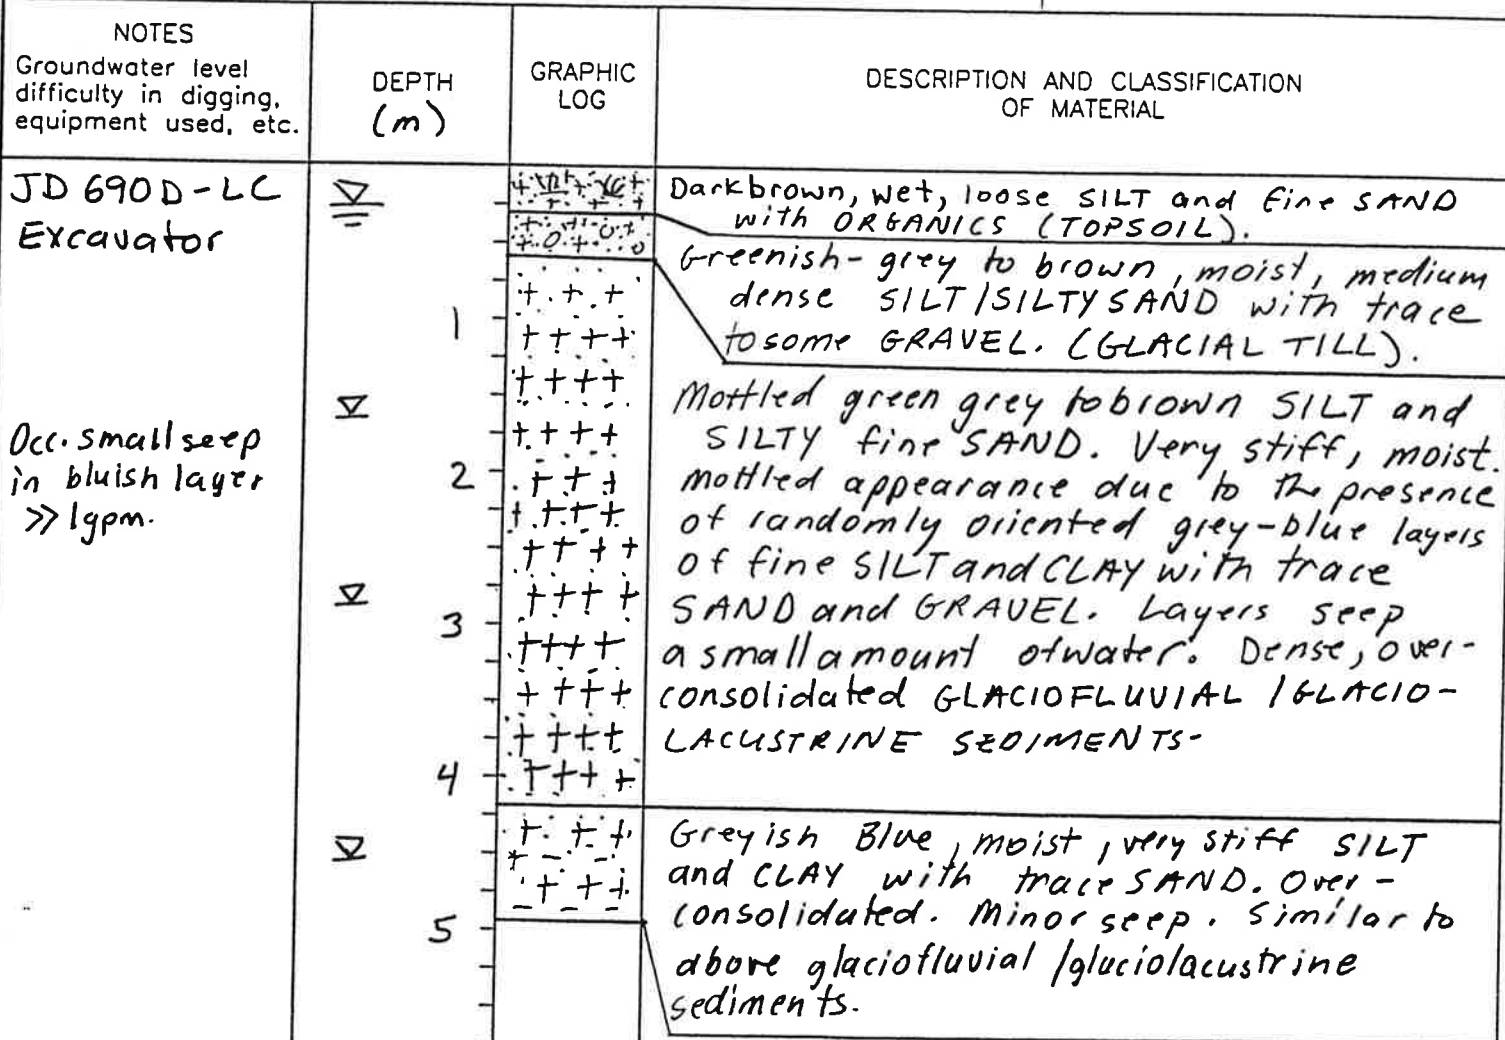 NOTES
Groundwater level
difficulty in digging,
equipment used, etc.
DEPTH
(m)
GRAPHIC
LOG
DESCRIPTION AND CLASSIFICATION
OF MATERIAL
JD 690D-LC
Excavator
Occ. small seep
in bluish layer
>> 1gpm.
1
2
3
4
5
Dark brown, wet, loose SILT and fine SAND
with ORGANICS (TOPSOIL).
Greenish-grey to brown, moist, medium
dense SILT/SILTY SAND with trace
to some GRAVEL. (GLACIAL TILL).
Mottled green grey to brown SILT and
SILTY fine SAND. Very stiff, moist.
mottled appearance due to the presence
of randomly oriented grey-blue layers
of fine SILT and CLAY with trace
SAND and GRAVEL. Layers seep
a small amount of water. Dense, over-
consolidated GLACIOFLUVIAL / GLACIO-
LACUSTRINE SEDIMENTS-
Greyish Blue, moist, very stiff SILT
and CLAY with trace SAND. Over-
consolidated. Minor seep. Similar to
above glaciofluvial /glaciolacustrine
sediments.